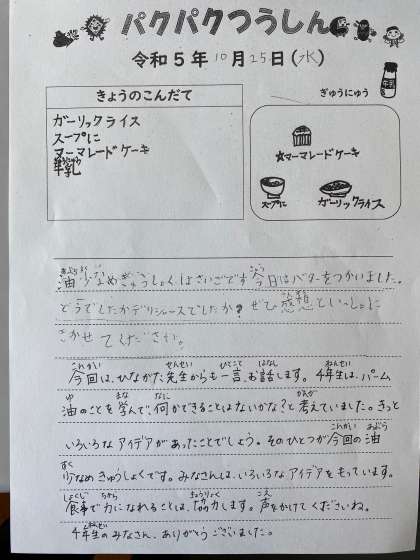 パクパクつうしん
令和5年10月25日(水)
きょうのこんだて
ガーリックライス
スープに
マーマレードケーキ
ぎゅうにゅう
牛乳
ぎゅうにゅう
牛乳
☆マーマレードケーキ
スープに
ガーリックライス
あぶらすく きょう
油少なめきゅうしょくはさいごです。今日はバターをつかいました。
どうでしたかデリシャースでしたか?ぜひ感想といっしょに
きかせてください。
こんかい せんせい ひとこと はな ねんせい
今回は、ひながた先生からも一言、お話します。4年生は、パーム
ゆ まな なに かんが
油のことを学んで、何かできることはないかな?と考えていました。きっと
こんかい あぶら
いろいろなアイデアがあったことでしょう。そのひとつが今回の油
すく
少なめきゅうしょくです。みなさんは、いろいろなアイデアをもっています。
しょくじ ちから きょうりょく こえ
食事で力になれることは、協力します。声をかけてくださいね。
ねんせい
4年生のみなさん、ありがとうございました。